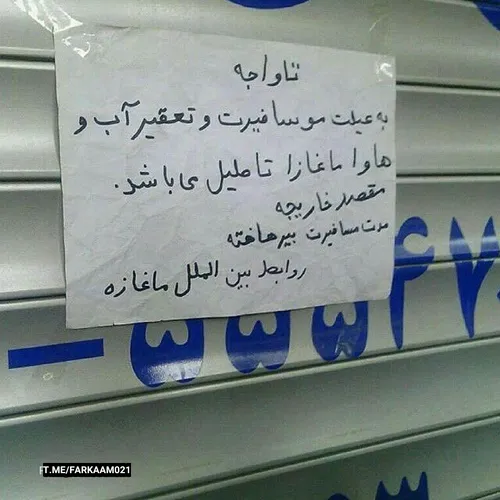 تاواجه
به عیلت موسافیرت و تعقیر آب و
هاوا ماغازا تاطیل می باشد.
مقصد خاریجه
مدت مسافیرت بیر هافته
روابط بین الملل ماغازه
۵۵۵۴۷
T.ME/FARKAAM021